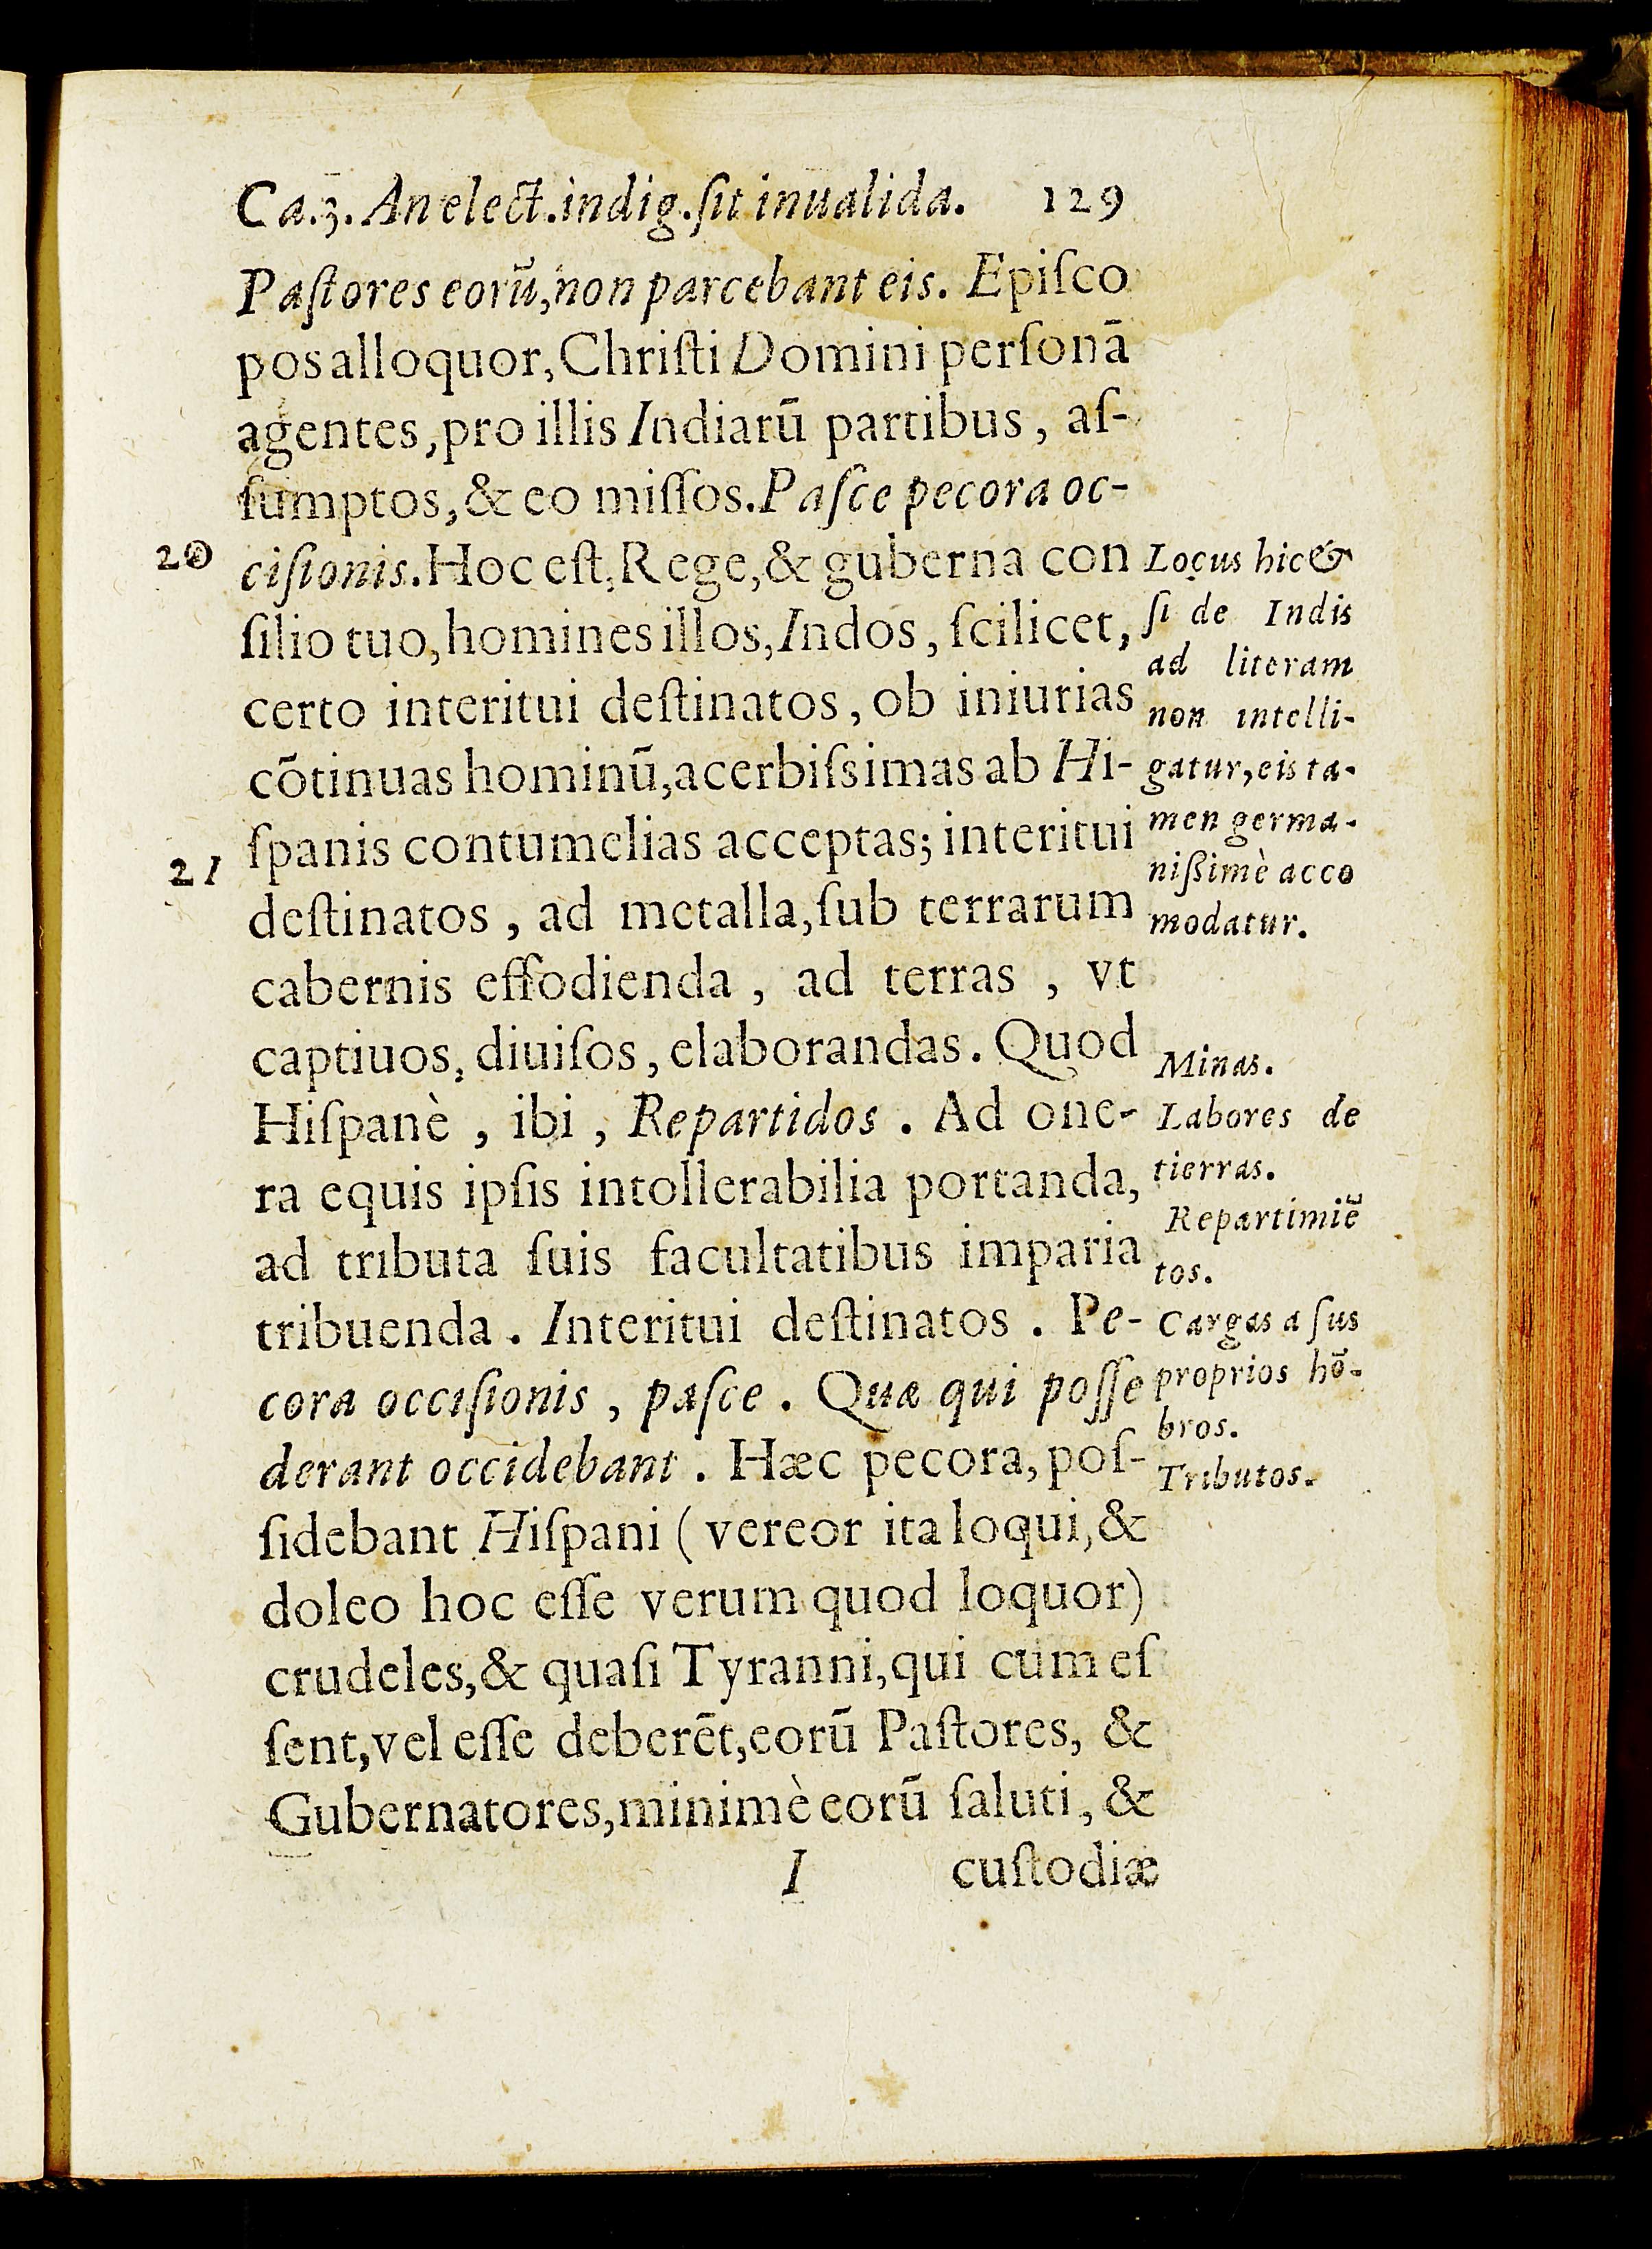 Ca.3. An elect.indig.ſit inualida. 129
Paſtores eorũ, non parcebant eis. Epiſco
pos alloquor, Chriſti Domini perſonā
agentes, pro illis Indiarū partibus, aſ-
ſumptos, & eo miſſos. Paſce pecora oc-
20
ciſionis. Hoc eſt, Rege, & guberna con
ſilio tuo, homines illos, Indos, ſcilicet,
certo interitui deſtinatos, ob iniurias
cōtinuas hominū, acerbiſsimas ab Hi-
ſpanis contumelias acceptas; interitui
21
deſtinatos, ad metalla, ſub terrarum
cabernis effodienda, ad terras, vt
captiuos, diuiſos, elaborandas. Quod
Hiſpanè, ibi, Repartidos. Ad one-
ra equis ipſis intollerabilia portanda,
ad tributa ſuis facultatibus imparia
tribuenda. Interitui deſtinatos. Pe-
cora occiſionis, paſce. Quæ qui poſſe
derant occidebant. Hæc pecora, poſ-
ſidebant Hiſpani (vereor ita loqui, &
doleo hoc eſſe verum quod loquor)
crudeles, & quaſi Tyranni, qui cum eſ
ſent, vel eſſe deberēt, eorū Paſtores, &
Gubernatores, minimè eorū ſaluti, &
I custodiæ
Locus hic &
ſi de Indis
ad literam
non intelli-
gatur, eis ta-
men germa-
nißimè acco
modatur.
Minas.
Labores de
tierras.
Repartimiẽ
tos.
Cargas a ſus
proprios hõ-
bros.
Tributos.